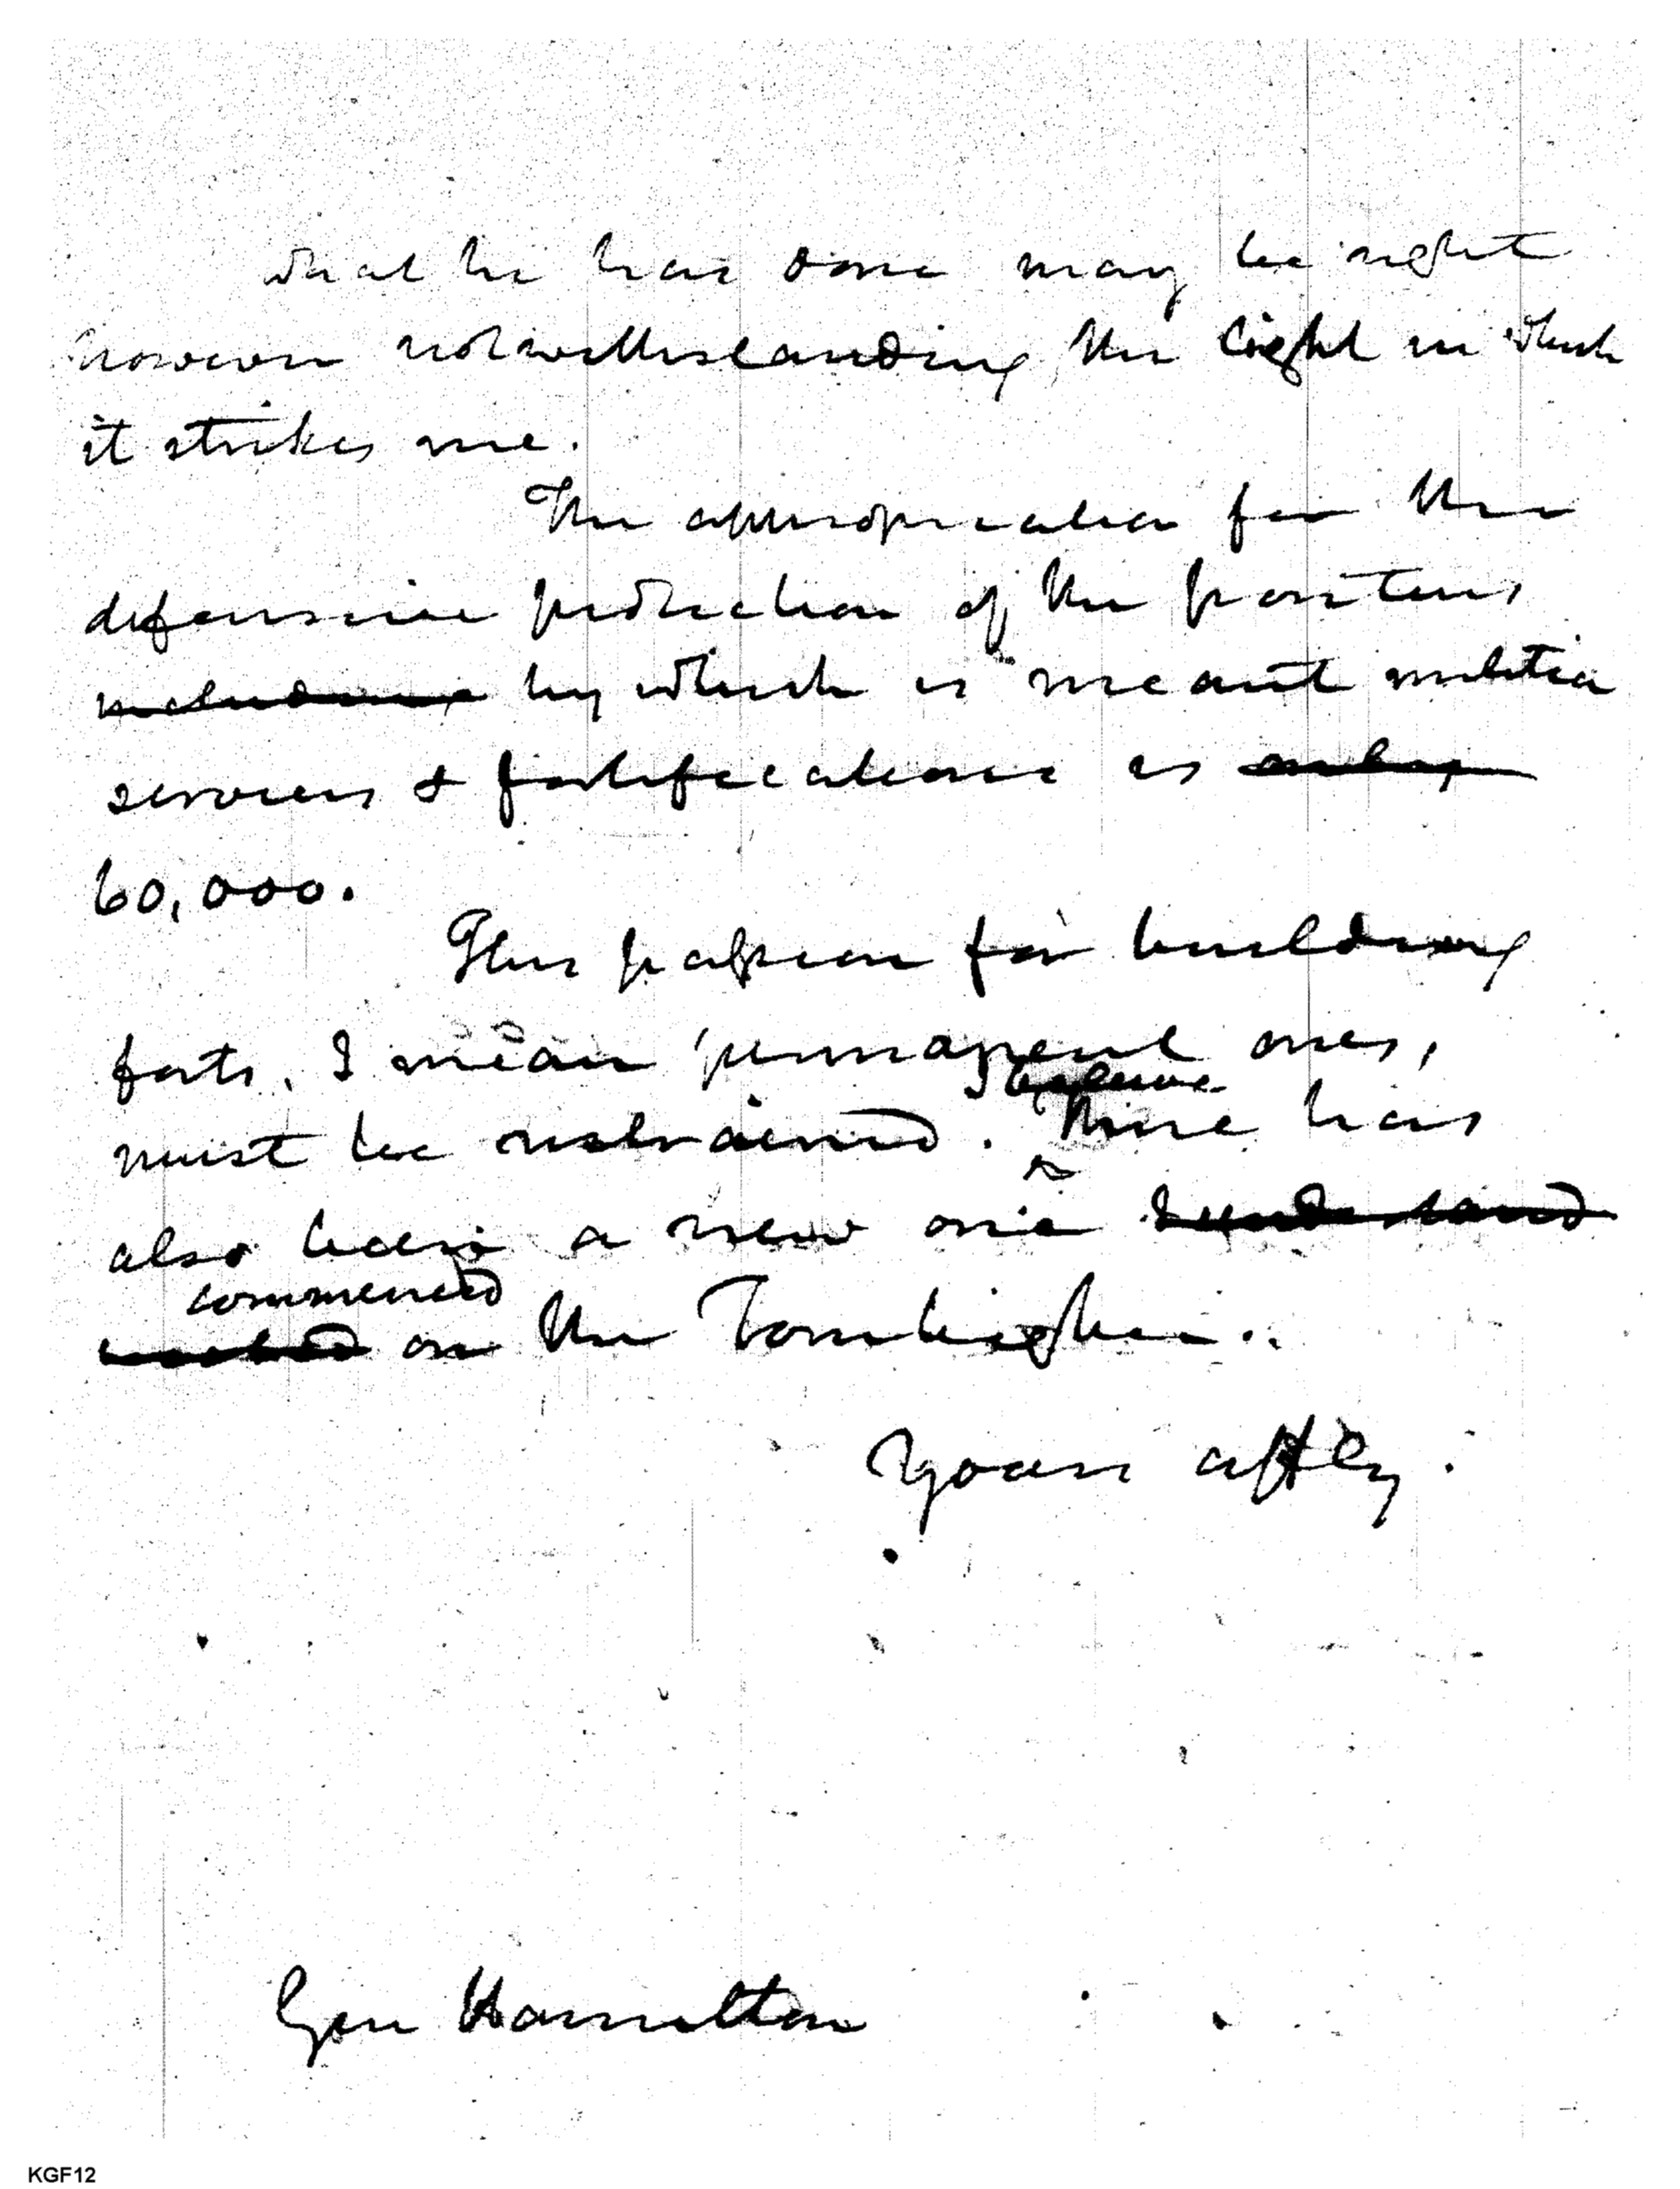 What he has done may be right
however notwithstanding the light in which
it strikes me.
The appropriation for the
defensive protection of the frontiers
including by which is meant militia
services & fortifications is only
60,000.
This passion for building
forts, I mean permanent ones,
I believe
must be restrained. There has
also been a new one I understand
commenced
on the Tombigbee.
Yours affly.
Gen Hamilton
KGF12